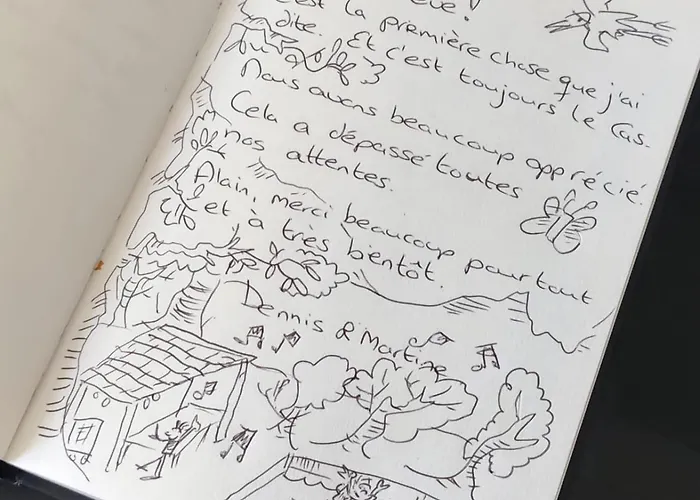 est la première chose que j'ai
dite. Et c'est toujours le cas.
Nous avons beaucoup apprécié.
Cela a dépassé toutes
nos attentes.
Alain, merci beaucoup pour tout
et à très bientôt.
Dennis & Martine